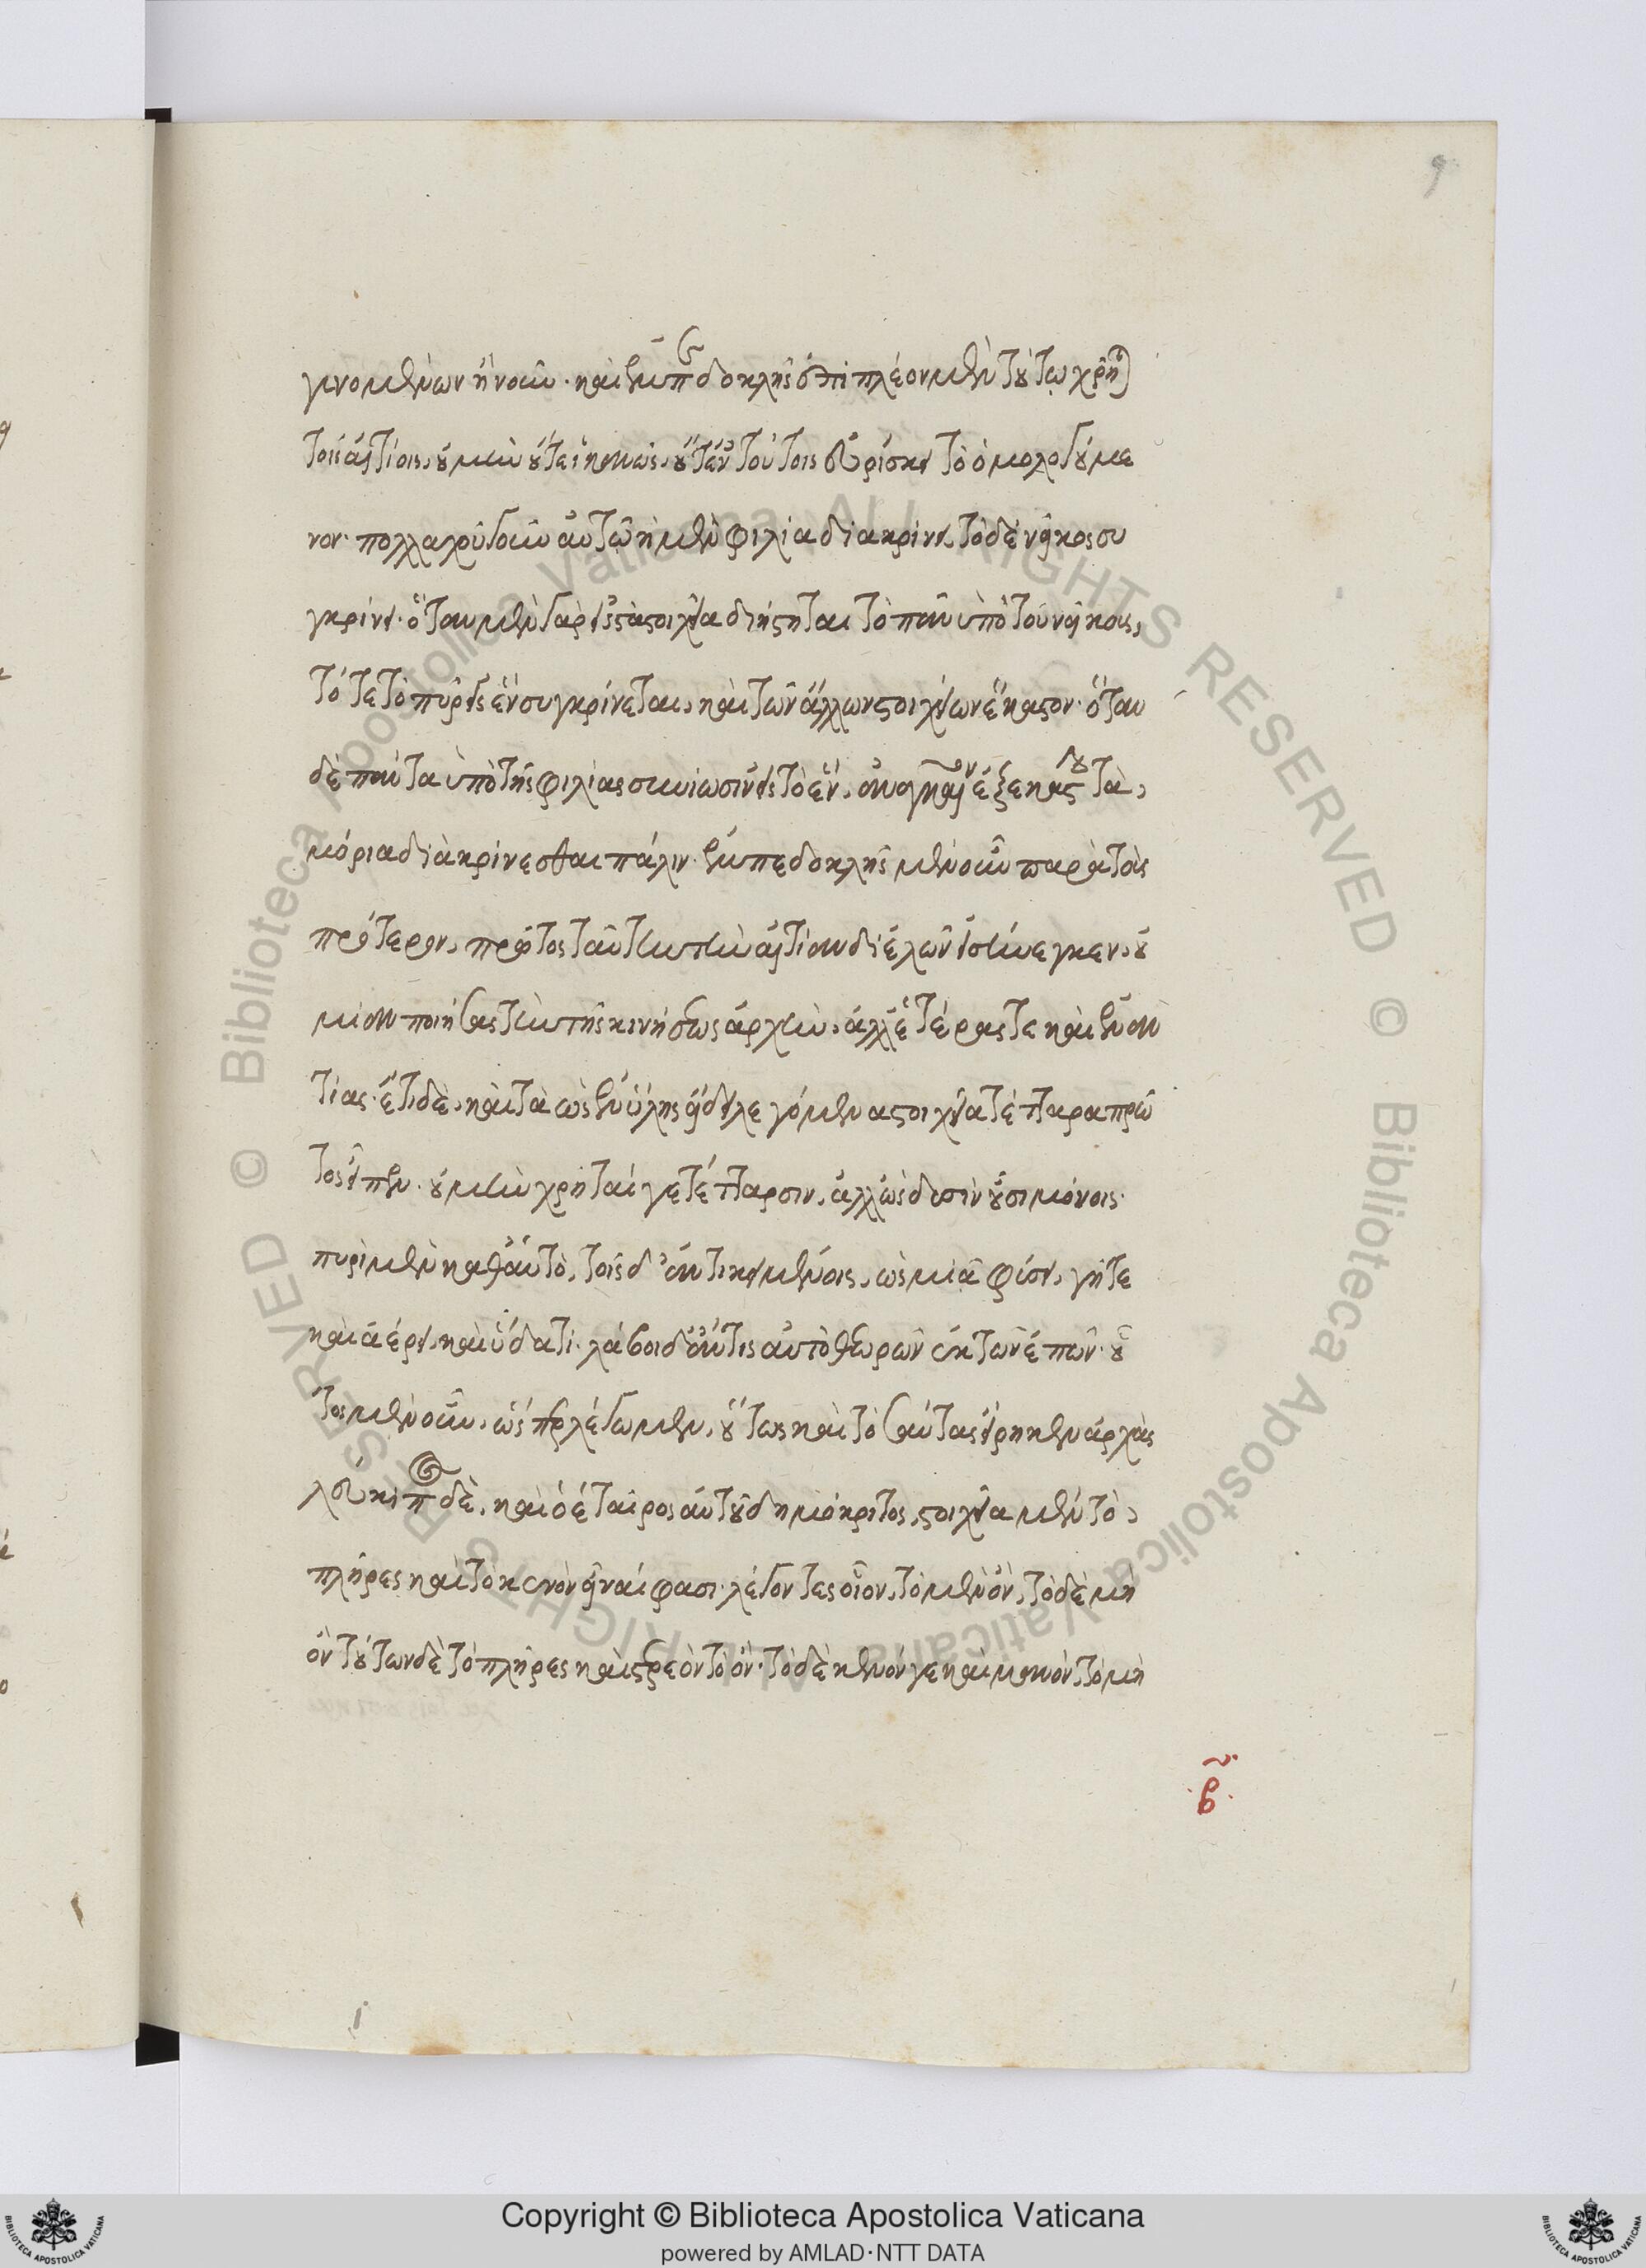 9
γινομένων ἢ νοῦν· καὶ ἐμπεδοκλῆς ἐπιπλέον μὲν τούτω χρῆται
τοῖς αἰτίοις, οὐ μὴν οὔτε ἱκανῶς, οὔτ' ἐν τούτοις εὑρίσκει τὸ ὁμολογούμε
νον· πολλαχοῦ γοῦν αὐτῶ ἡ μὲν φιλία διακρίνει, τὸ δὲ νεῖκος συ
γκρίνει· ὅταν μὲν γὰρ εἰς τὰ στοιχεῖα διίστηται τὸ πᾶν ὑπὸ τοῦ νείκους,
τότε τὸ πῦρ εἰς ἓν συγκρίνεται, καὶ τῶν ἄλλων στοιχείων ἕκαστον· ὅταν
δὲ πάντα ὑπὸ τῆς φιλίας συνίωσιν εἰς τὸ ἕν, ἀναγκαῖον ἐξ ἑκάστου τὰ,
μόρια διακρίνεσθαι πάλιν· ἐμπεδοκλῆς μὲν οὖν παρὰ τοὺς
πρότερον, πρῶτος ταύτην τὴν αἰτίαν διελὼν εἰσήνεγκεν, οὐ
μίαν ποιήσας τὴν τῆς κινήσεως ἀρχήν, ἀλλ' ἑτέρας τε καὶ ἐναν
τίας· ἔτι δὲ, καὶ τὰ ὡς ἐν ὕλης εἴδει λεγόμενα στοιχεῖα τέτταρα πρῶ
τος εἶπεν· οὐ μὴν χρῆταί γε τέτταρσιν, ἀλλ' ὡς δυσὶν οὖσι μόνοις·
πυρὶ μὲν καθ' αὑτὸ, τοῖς δ' ἀντικειμένοις, ὡς μιᾶ φύσει, γῆ τε
καὶ ἀέρι, καὶ ὕδατι· λάβοι δ' ἄν τις αὐτὸ θεωρῶν ἐκ τῶν ἐπῶν· οὗ
τος μὲν οὖν, ὥσπερ λέγομεν, οὕτως καὶ τοσαύτας εἴρηκεν ἀρχὰς
λεύκιππος δὲ, καὶ ὁ ἑταῖρος αὐτοῦ δημόκριτος, στοιχεῖα μὲν τὸ,
πλῆρες καὶ τὸ κενὸν εἶναί φασι· λέγοντες οἷον, τὸ μὲν ὂν, τὸ δὲ μὴ
ὂν τούτων δὲ τὸ πλῆρες καὶ στερεὸν τὸ ὂν· τὸ δὲ κενόν γε καὶ μανὸν, τὸ μὴ
·β·
© Biblioteca Apostolica Vaticana ALL RIGHTS RESERVED © Biblioteca Apostolica Vaticana ALL RIGHTS RESERVED
Copyright © Biblioteca Apostolica Vaticana
powered by AMLAD·NTT DATA